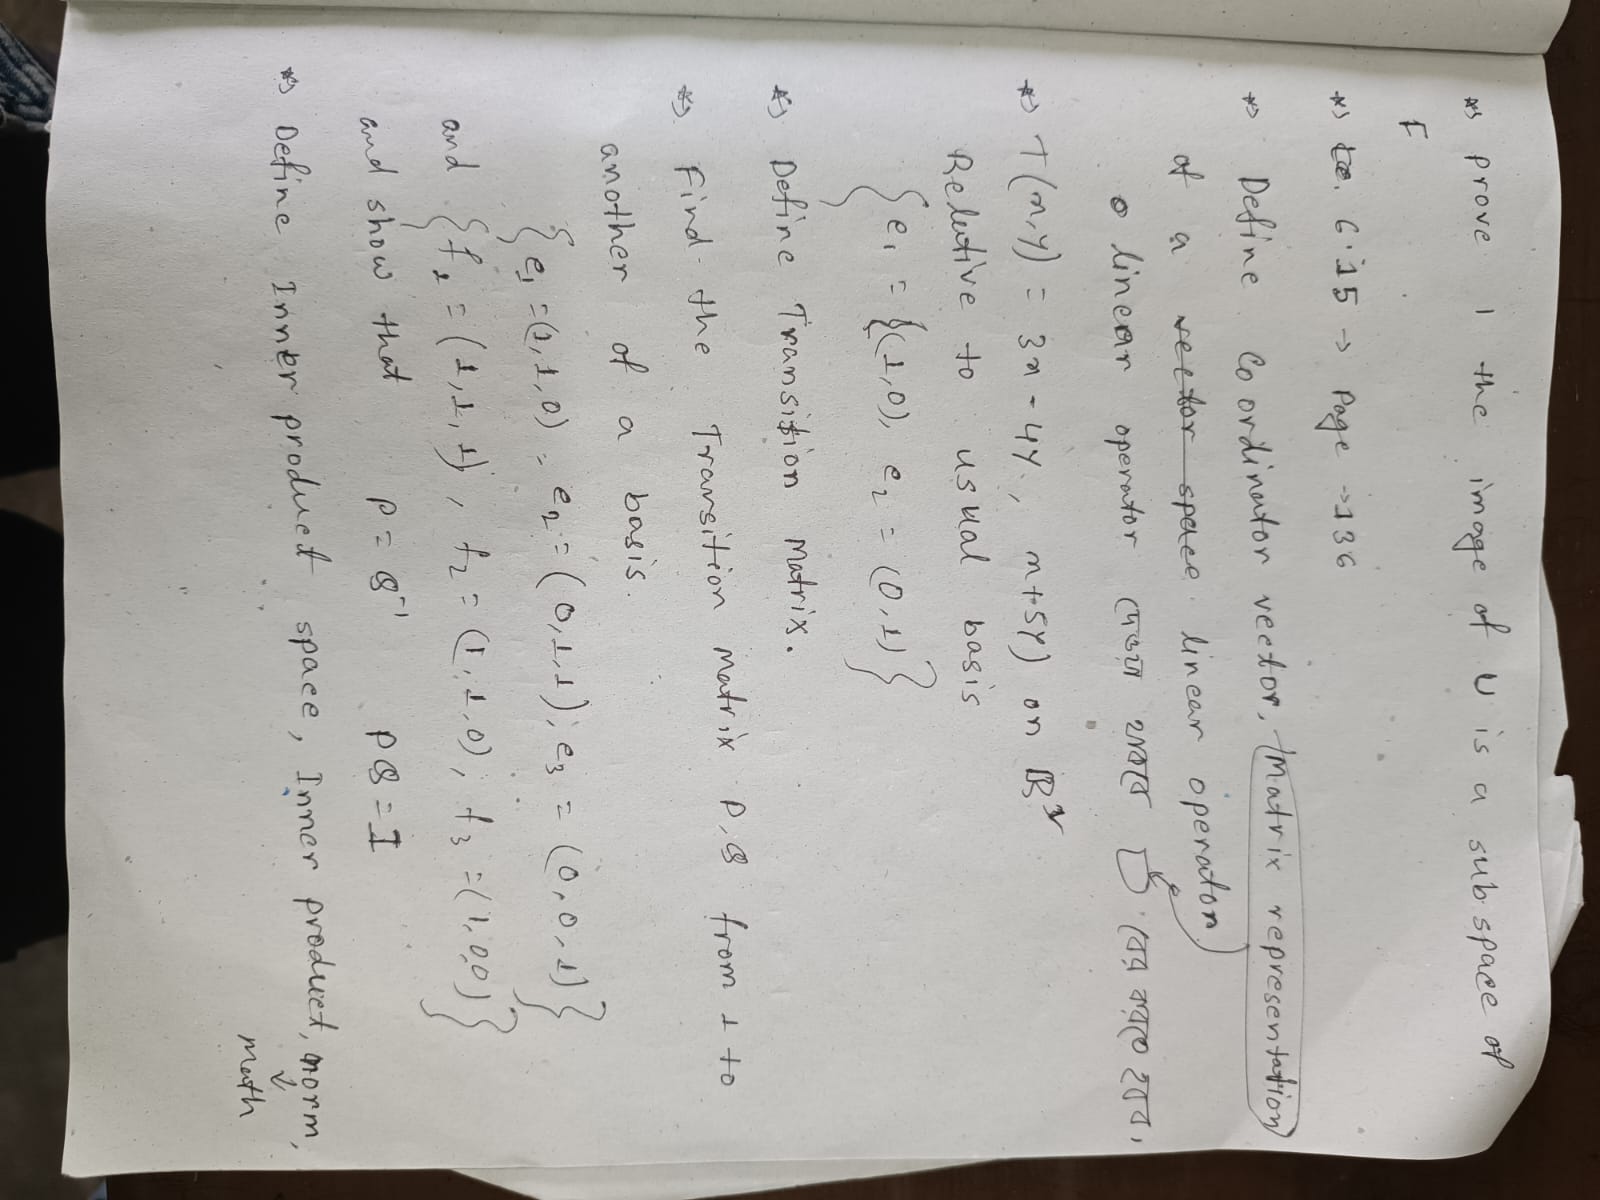 *) prove 1 the image of U is a sub space of
F
*) 6.15 → Page → 136
*) Define Co ordinator vector, Matrix representation
of a vector space linear operator
o linear operator দেওয়া থাকবে বের করতে হবে।
*) T(x,y) = 3x - 4y, x+5y) on R²
Relative to usual basis
{e₁ = {(1,0), e₂ = (0,1)}
*) Define Transition Matrix.
*) Find the Transition Matrix P, Q from 1 to
another of a basis.
{e₁ = (1,1,0), e₂ = (0,1,1), e₃ = (0,0,1)}
and {f₁ = (1,1,1), f₂ = (1,1,0), f₃ = (1,0,0)}
and show that P = Q⁻¹ PQ = I
*) Define Inner product space, Inner product, norm,
↓
math